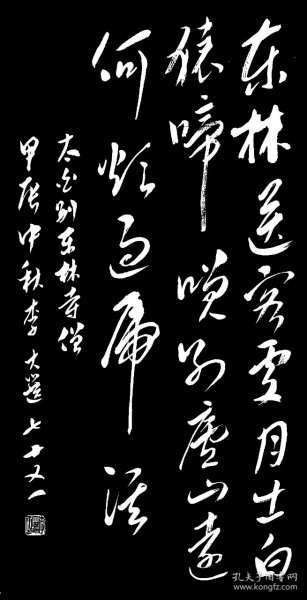 東林送客處月出白
猿啼笑别廬山遠
何煩過虎溪
太白别東林寺僧
甲辰中秋李 七十又一
孔夫子旧书网
www.kongfz.com